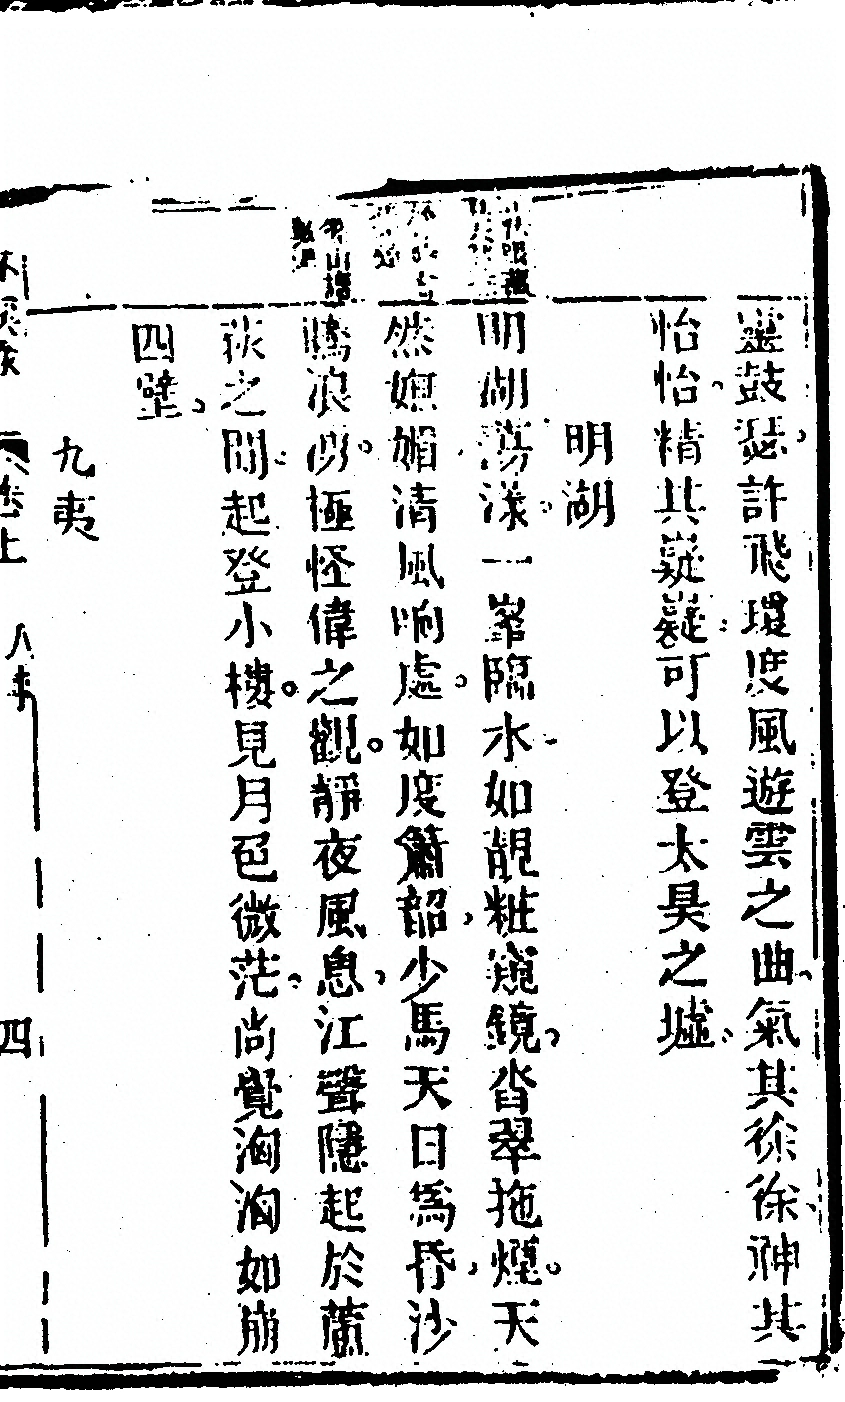 鼓瑟許飛環度風遊雲之曲氣其徐徐神其
怡怡精其嶷嶷可以登太昊之墟
明湖
明湖蕩漾一峯臨水如靚粧窺鏡沓翠拖煙天
然嫵媚清風响處如度簫韶少焉天日爲昏沙
驚浪湧極怪偉之觀靜夜風息江聲隱起於蘆
荻之間起登小樓見月色微茫尚覺洶洶如崩
四壁
九夷
卷上
四